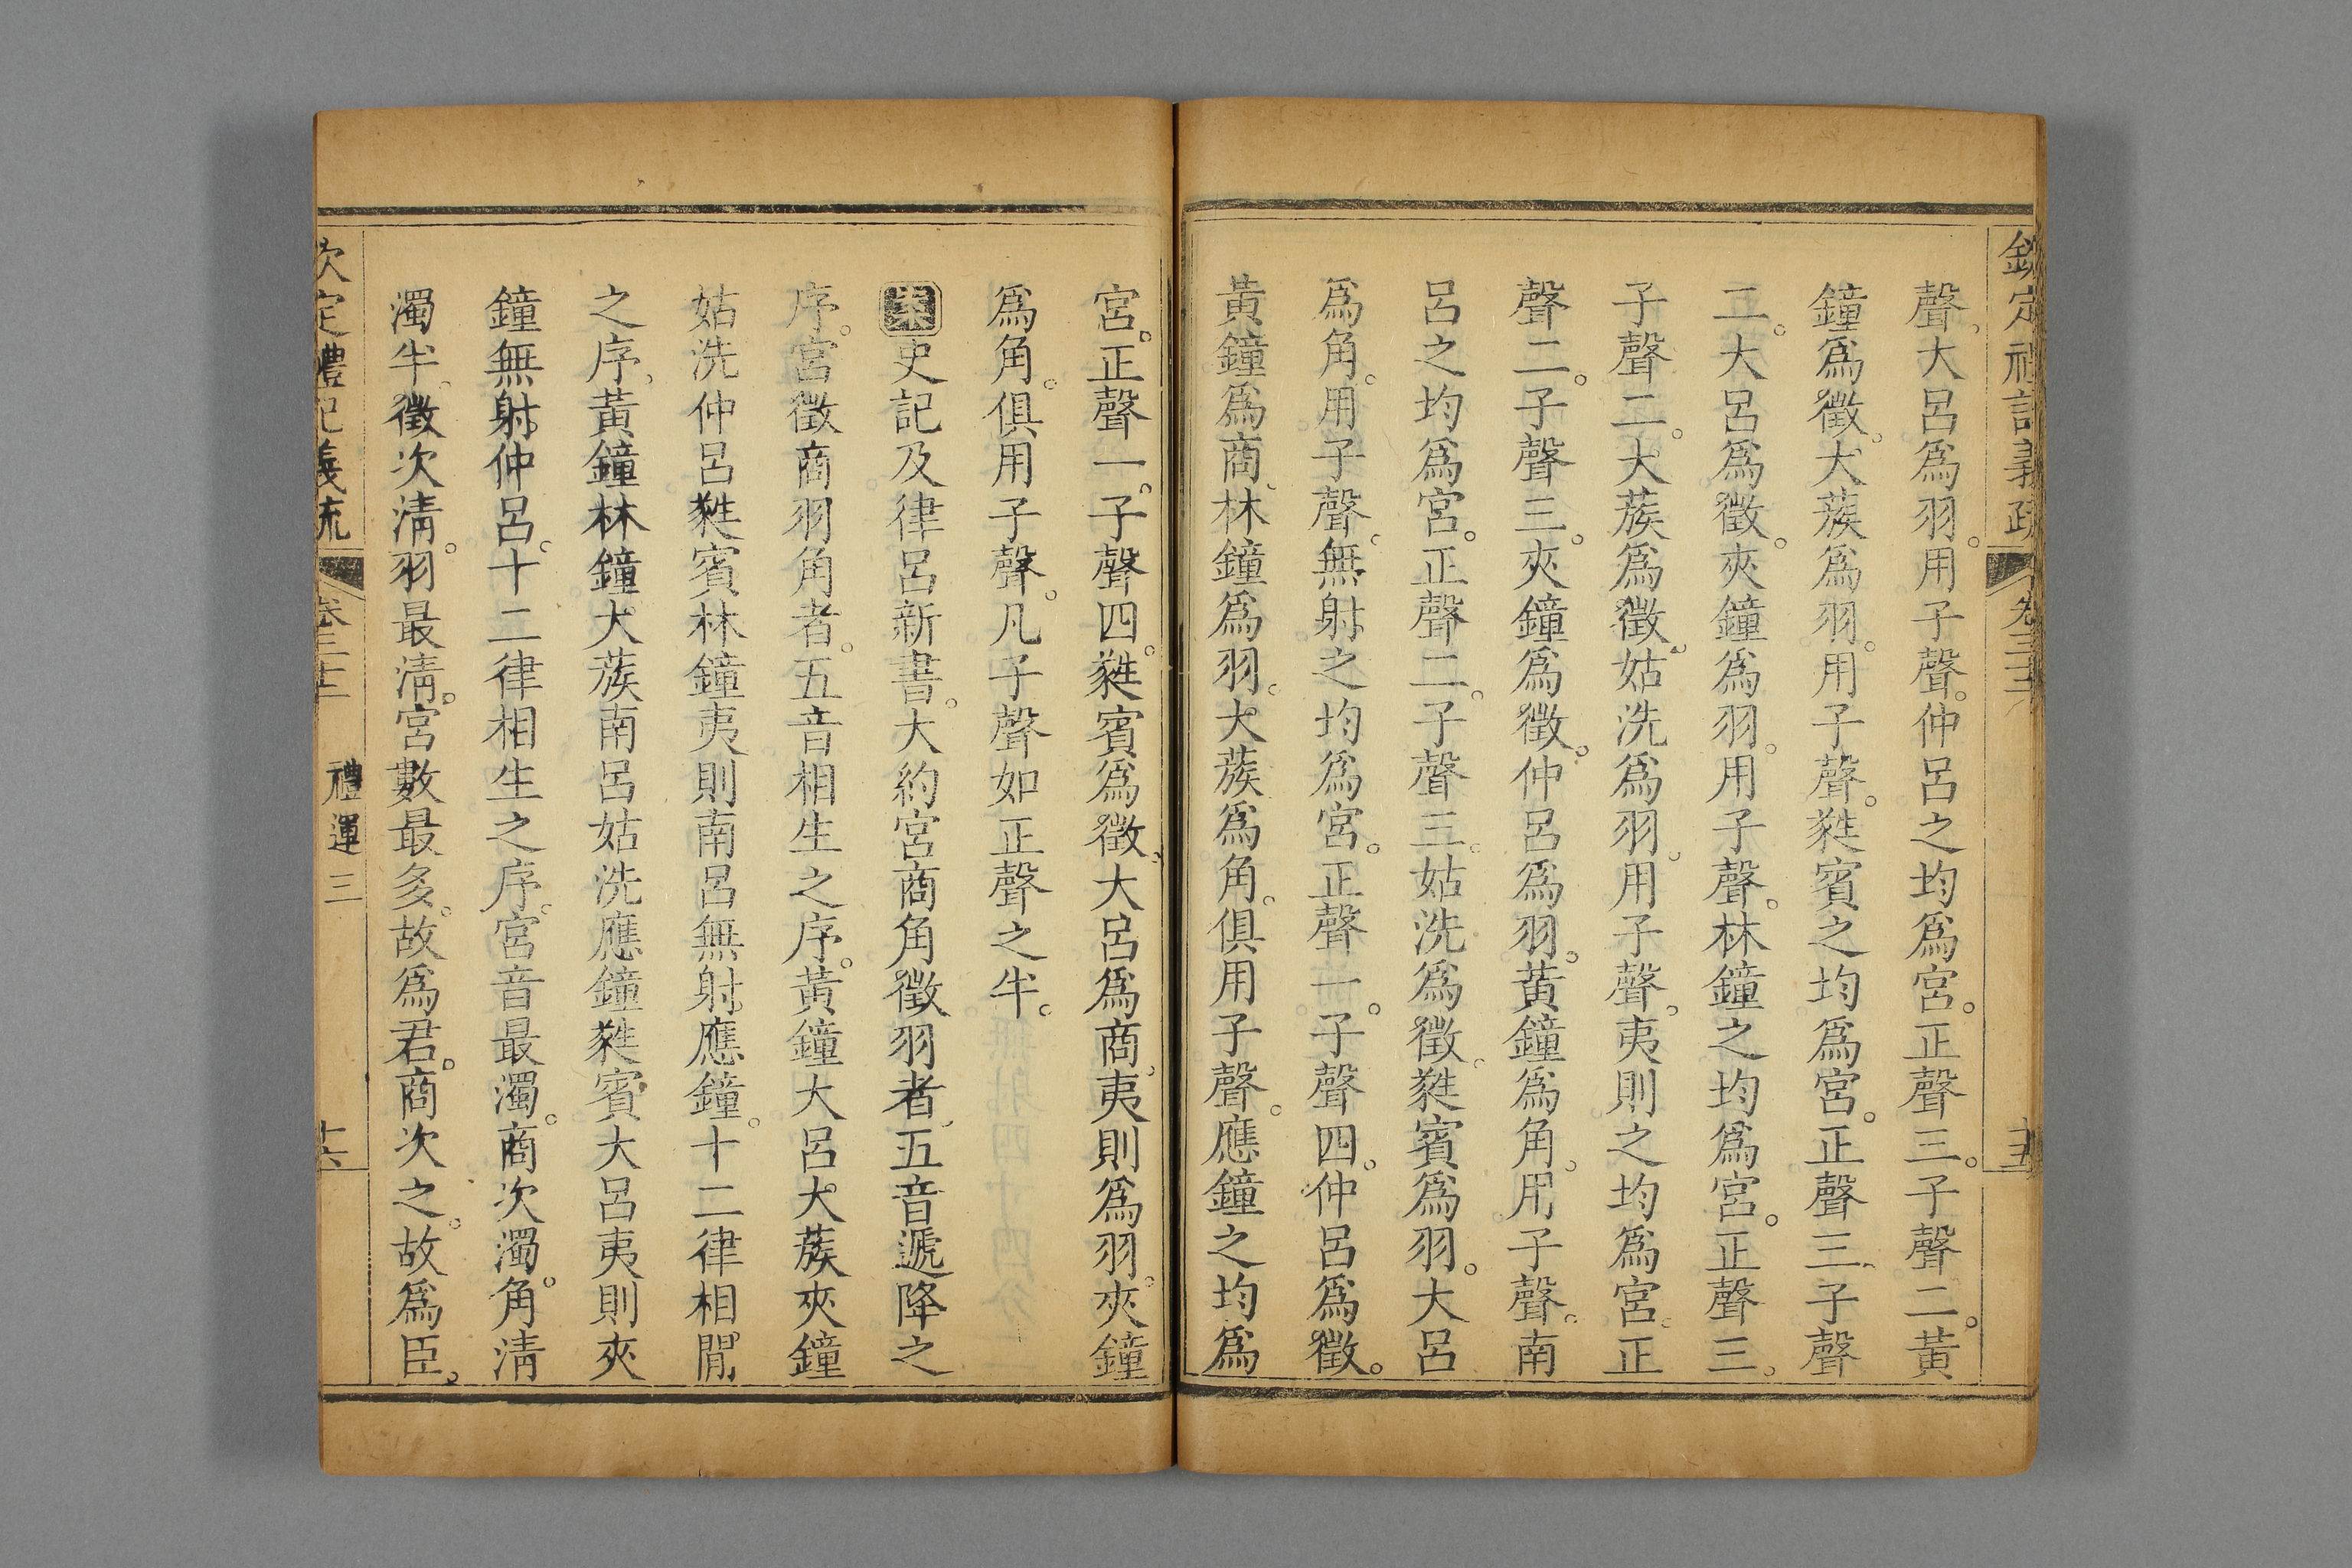 欽定禮記義疏 卷三十二 十五
聲大呂爲羽。用子聲。仲呂之均爲宮。正聲三。子聲二。黃
鐘爲徵。大蔟爲羽。用子聲。蕤賓之均爲宮。正聲三。子聲
二。大呂爲徵。夾鐘爲羽。用子聲。林鐘之均爲宮。正聲三。
子聲二。大蔟爲徵。姑洗爲羽。用子聲。夷則之均爲宮。正
聲二。子聲三。夾鐘爲徵。仲呂爲羽。黃鐘爲角。用子聲。南
呂之均爲宮。正聲二。子聲三。姑洗爲徵。蕤賓爲羽。大呂
爲角。用子聲。無射之均爲宮。正聲一。子聲四。仲呂爲徵。
黃鐘爲商。林鐘爲羽。大蔟爲角。俱用子聲。應鐘之均爲
宮。正聲一。子聲四。蕤賓爲徵。大呂爲商。夷則爲羽。夾鐘
爲角。俱用子聲。凡子聲如正聲之半。
案史記及律呂新書。大約宮商角徵羽者、五音遞降之
序。宮徵商羽角者。五音相生之序。黃鐘大呂大蔟夾鐘
姑洗仲呂蕤賓林鐘夷則南呂無射應鐘。十二律相閒
之序、黃鐘林鐘大蔟南呂姑洗應鐘蕤賓大呂夷則夾
鐘無射仲呂。十二律相生之序。宮音最濁。商次濁。角清
濁半、徵次清。羽最清。宮數最多。故爲君。商次之。故爲臣。
欽定禮記義疏 卷三十二 禮運三 十六